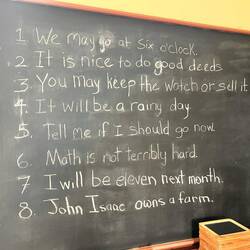 1 We may go at Six o'clock.
2. It is nice to do good deeds
3. You may keep the watch or sell it
4. It will be a rainy day.
5. Tell me if I should go now.
6. Math is not terribly hard.
7 I will be eleven next month.
8. John Isaac owns a farm.